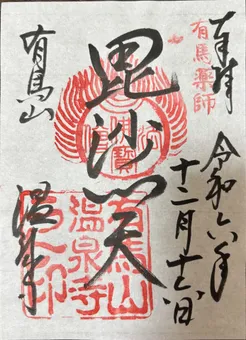 奉拝
有馬薬師
令和六年
十二月十六日
毘沙門天
佛法僧寶
有馬山
温泉寺
有馬山
温泉寺
之印